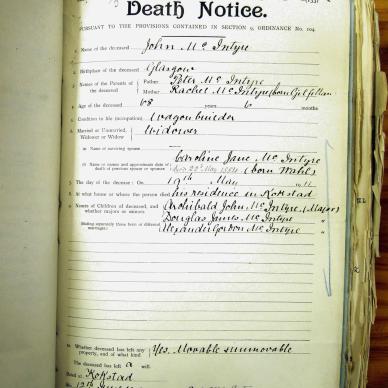 Death Notice.
PURSUANT TO THE PROVISIONS CONTAINED IN SECTION 9, ORDINANCE No. 104.
1. Name of the deceased John Mc Intyre
2. Birthplace of the deceased Glasgow
3. Names of the Parents of the deceased Father Peter Mc Intyre
Mother Rachel Mc Intyre (born Gilfillan
4. Age of the deceased 68 years 6 months
5. Condition in life (occupation) Wagonbuilder
6. Married or Unmarried, Widower or Widow Widower
(a) Name of surviving spouse
(b) Name or names and approximate date of death of previous spouse or spouses Caroline Jane Mc Intyre
(born
7. The day of the decease: On 19th May 1911
8. At what house or where the person died his residence in Kokstad
9. Names of Children of deceased, and whether majors or minors Archibald John Mc Intyre (Major)
Douglas James Mc Intyre "
(Stating separately those born of different marriages) Alexander Gordon Mc Intyre "
10. Whether deceased has left any property, and of what kind Yes. Movable & immovable
The deceased left a will.
Dated at Kokstad
12th